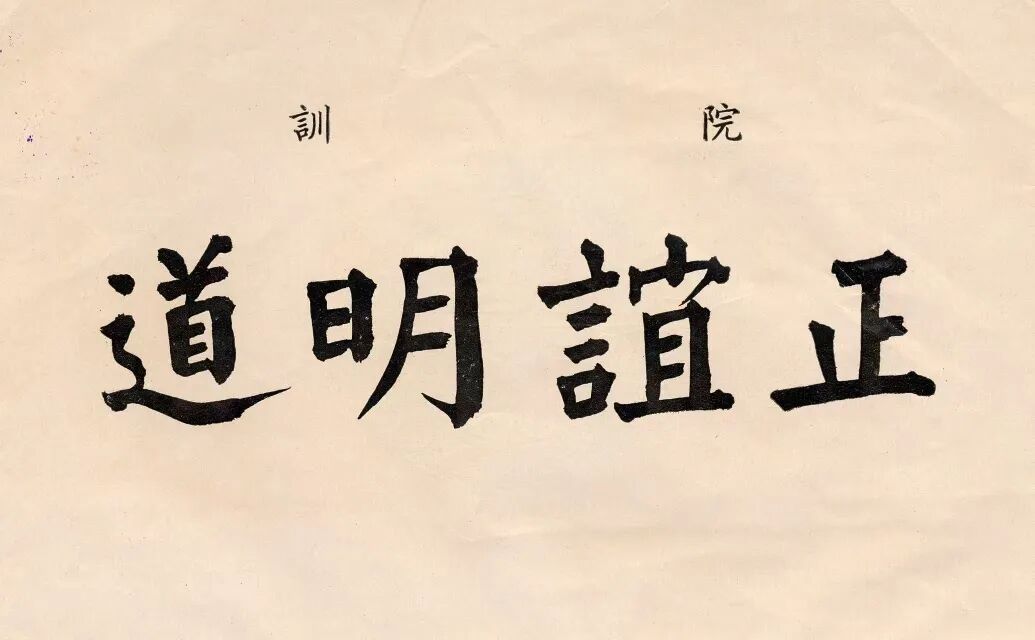 院訓
正誼明道